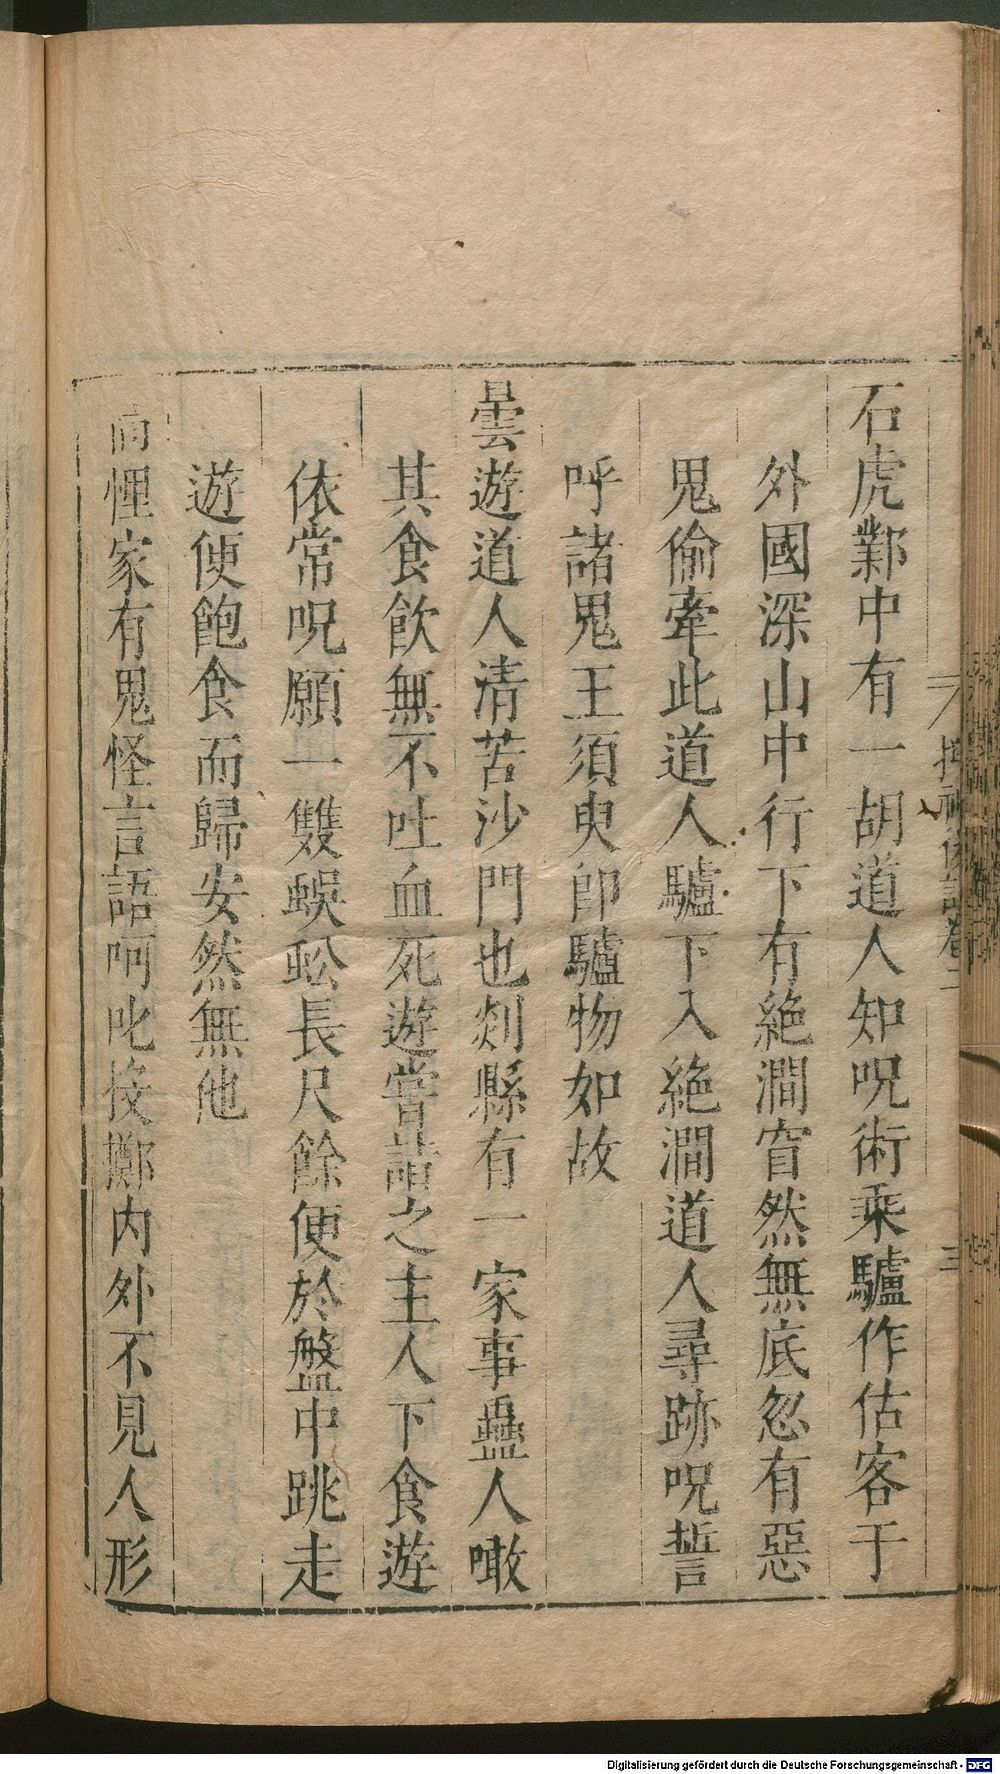 石虎鄴中有一胡道人知呪術乘驢作估客于
外國深山中行下有絶澗窅然無底忽有惡
鬼偷牽此道人驢下入絶澗道人尋跡呪誓
呼諸鬼王須臾卽驢物如故
曇遊道人清苦沙門也剡縣有一家事蠱人噉
其食飲無不吐血死遊嘗詣之主人下食遊
依常呪願一雙蜈蚣長尺餘便於盤中跳走
遊便飽食而歸安然無他
高悝家有鬼怪言語呵叱投擲内外不見人形
搜神後記卷二
三
Digitalisierung gefördert durch die Deutsche Forschungsgemeinschaft - DFG